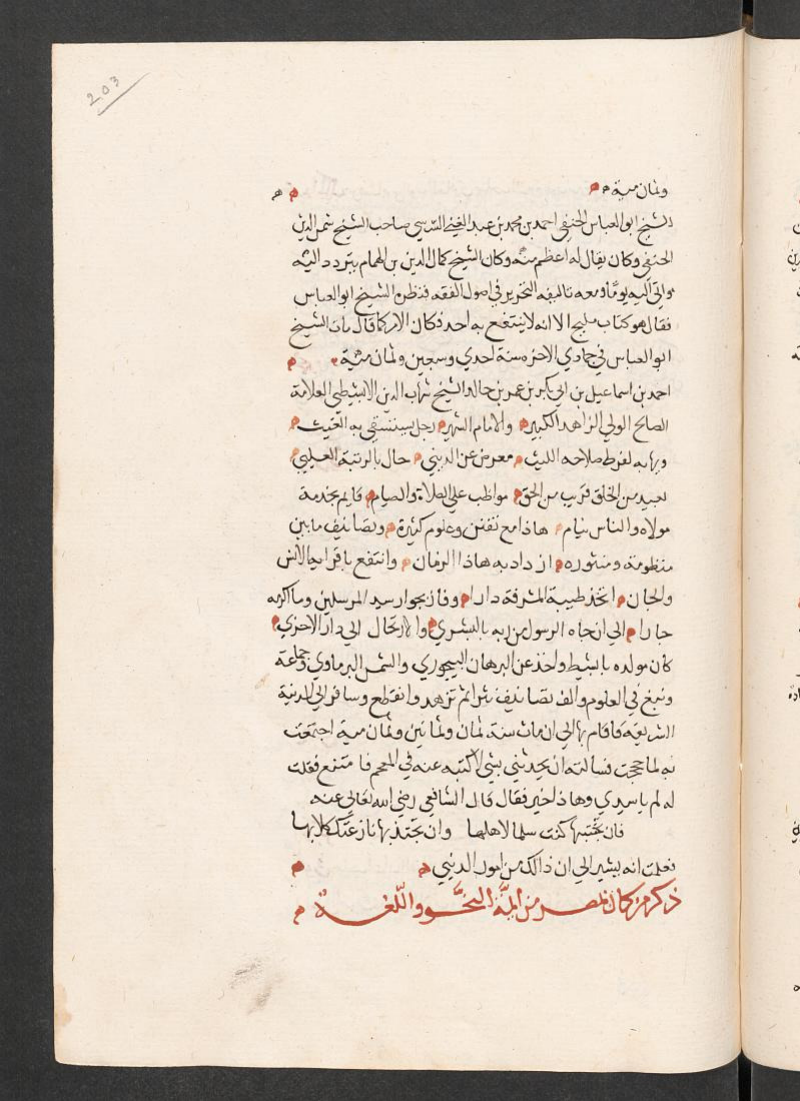 203
وثمان مية
الشيخ ابو العباس الحنفي احمد بن محمد بن عبد الغني السرسي صاحب الشيخ شمس الدين
الحنفي وكان يقال له اعظم منه وكان الشيخ كمال الدين بن الهمام يتردد اليه
واتي اليه يوما ومعه تاليفه التحرير في اصول الفقه فنظره الشيخ ابو العباس
فقال هو كتاب مليح الا انه لا ينتفع به احد فكان الامر كما قال مات الشيخ
ابو العباس في جمادي الاخره سنة احدي وسبعين وثمان مئية
احمد بن اسماعيل بن ابي بكر بن عمر بن خالد الشيخ شهاب الدين الابشيطي العلامة
الصالح الولي الزاهد الكبير والامام الشهير رجل يستسقي به الغيث
ويهابه لفرط صلاحه الليث معرض عن الدنيي حال بالرتبة العليي
بعيد من الخلق قريب من الحق مواظب علي الصلاة والصيام قايم بخدمة
مولاه والناس نيام هاذا مع تفنن وعلوم كثيرة وتصانيف ما بين
منظومة ومنثوره ازداد به هاذا الزمان وانتفع باقرايه الانس
والجان اتخذ طيبة المشرفة دارا وفاز بجوار سيد المرسلين وما اكرمه
جارا الي ان جاه الرسول من ربه بالبشري والارتحال الي دار الاخري
كان مولده بابشيط واخذ عن البرهان البيجوري والشمس البرماوي وجماعة
ونبغ في العلوم والف تصانيف ثم تزهد وانقطع وسافر الي المدينة
الشريفة فاقام بها الي ان مات سنة ثمان وثمانين وثمان مية اجتمعت
به لما حججت فسالته ان يحدثني بشي لاكتبه عنه في المعجم فامتنع فقلت
له لم يا سيدي وهاذا خير فقال قال الشافعي رضي الله تعالي عنه
فان تجتنبها كنت سلما لاهلها وان تجتذبها نازعتك كلابها
فعلمت انه يشير الي ان ذالك من امور الدنيي
ذكر من كان بمصر من ايمة النحو واللغة